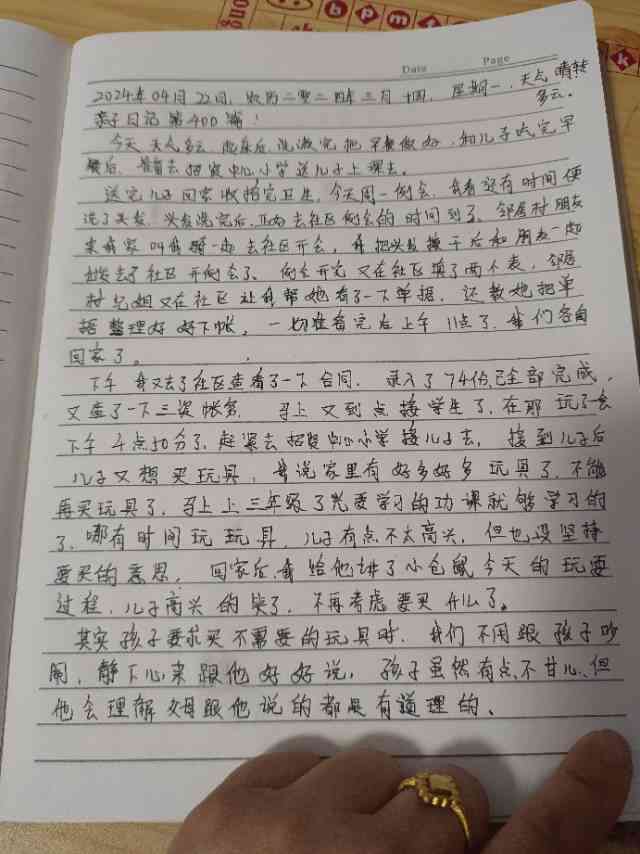 bpm
k
ong
Date Page
2024年04月22日，农历二零二四年三月十四，星期一，天气晴转
多云。
亲子日记第400篇！
今天天气多云，起床后，洗漱完把早餐做好，和儿子吃完早
餐后，准备去招贤中心小学送儿子上课去。
送完儿子回家收拾完卫生，今天周一例会，我看还有时间便
洗了头发，头发洗完后，正为去社区例会的时间到了、邻居村朋友
来我家叫我跟一起去社区开会，我把头发擦干后和朋友一起
去了社区开例会了、例会开完又在社区填了两个表，邻居
村兄姐又在社区让我帮她看了一下单据，还教她把单
据整理好好下帐，一切准备完后上午11点了，我们各自
回家了。
下午我又去了社区查看了一下合同，录入了74份已全部完成，
又查了一下三资帐务，马上又到点接学生了，在那玩了会
下午4点10分了，赶紧去招贤中心小学接儿子去，接到儿子后
儿子又想买玩具，我说家里有好多好多玩具了，不能
再买玩具了，马上上三年级了光要学习的功课就够学习的
了，哪有时间玩玩具，儿子有点不太高兴，但也没坚持
要买的意思，回家后，我给他讲了小仓鼠今天的玩耍
过程，儿子高兴的笑了，不再考虑要买什么了。
其实孩子要求买不需要的玩具时，我们不用跟孩子吵
闹，静下心来跟他好好说，孩子虽然有点不甘心、但
他会理解父母跟他说的都是有道理的、